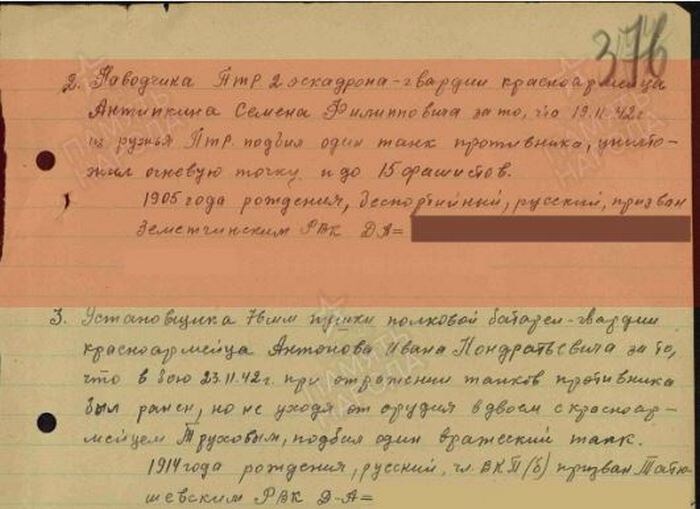 376
2. Наводчика ПТР 2 эскадрона-гвардии красноармейца
Антипкина Семена Филипповича за то, что 19.11.42 г
из ружья ПТР подбил один танк противника, уничто-
жил огневую точку и до 15 фашистов.
1905 года рождения, беспартийный, русский, призван
Земетчинским РВК ДА=
3. Установщика 76 мм пушки полковой батареи-гвардии
красноармейца Антонова Ивана Кондратьевича за то,
что в бою 23.11.42 г. при отражении танков противника
был ранен, но не уходя от орудия вдвоем с красноар-
мейцем Труховым, подбил один вражеский танк.
1914 года рождения, русский, чл. ВКП(б) призван Татищ
шевским РВК Д-А=
ПАМЯТЬ НАРОДА